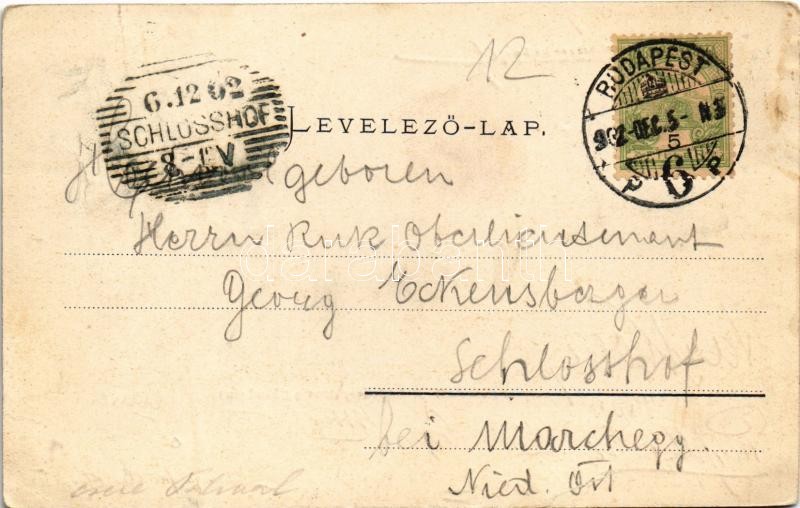 12
BUDAPEST
902 DEC. 5
5
6
6.12 02
SCHLOSSHOF
8-
LEVELEZŐ-LAP.
geboren
Herrn Kuk Oberlieutenant
Georg Eckensberger
Schlosshof
bei Marchegg.
Nied. Öst
darabanth